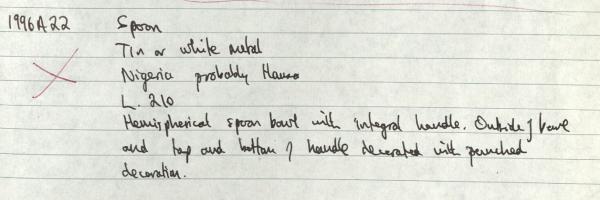 1996A22 Spoon
Tin or white metal
Nigeria probably Hausa
L. 210
Hemispherical spoon bowl with integral handle. Outside of bowl
and top and bottom of handle decorated with punched
decoration.